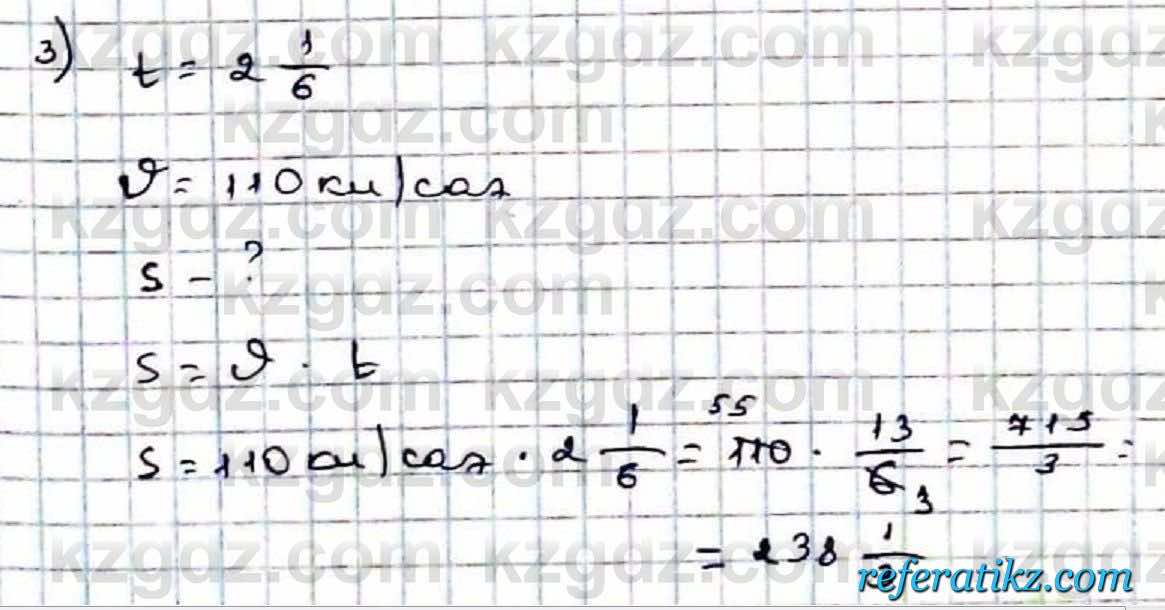 3) t = 2 1/6
ϑ = 110 км/сағ
S – ?
S = ϑ · t
S = 110 км/сағ · 2 1/6 = 110 55 · 13/6 3 = 715/3 =
= 238 1/3
kzgdz.com
referatikz.com